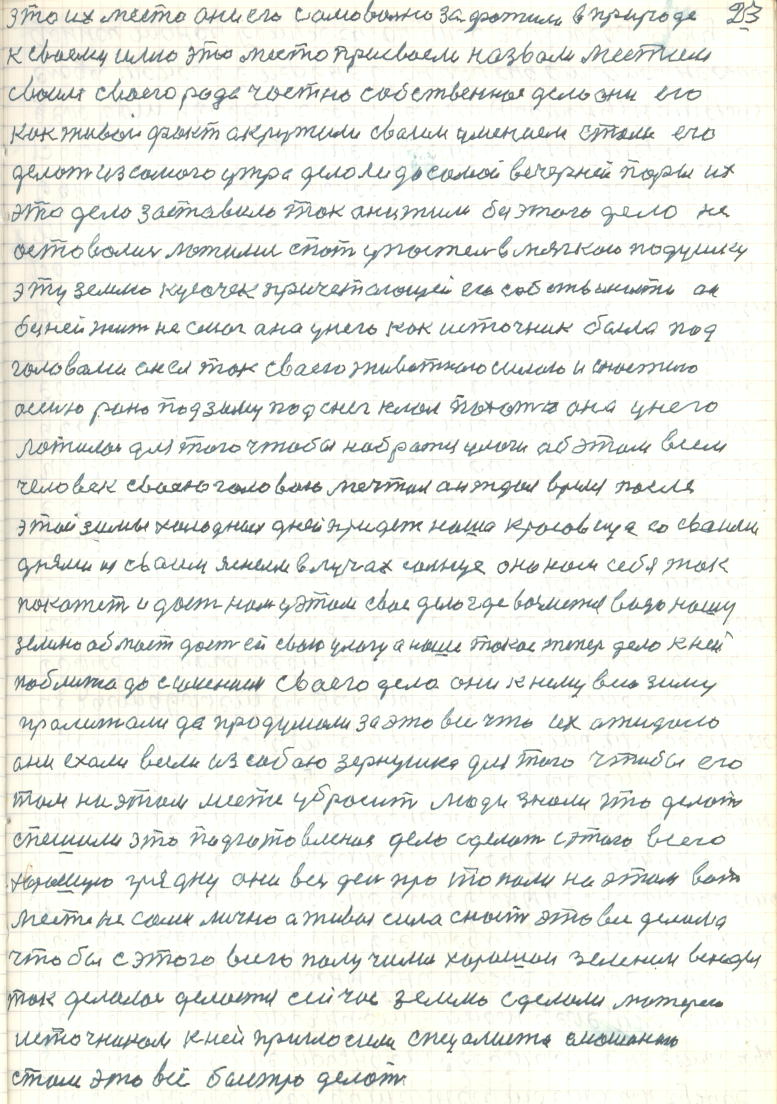 это их место они его самовольно задрожили в природе 23
к своему илио это место присвоели назвали местием
своим своего рода частно собственное дело они его
как живой факт акружили сваим умением стали его
делат из самого утра делоли до самой вечерней поры их
это дело заставило так они жили би этого дело не
оставолис ложилис спат у постел в мягкою подушку
эту землю кусочек причетающей его собствиности он
биней жит не смог ана у него как источник была под
головами он ел так сваего животного силою и
осеню рано под зиму под снег клал она у него
для того чтобы набратц улоги аб этом всем
человек сваею головою мечтал ан ждал время после
этой зимы холодных дней придет наша красовеца со сваими
днями и сваим яснем в лучах солнце она нам себя так
покажет и даст нам у этом свае дело где возметя вада нашу
землю даст ей сваю улогу а наше такое тепер дело к ней
поближа до сваего дела они к нему всю зиму
пралижали да продумали за это все что их ажидало
ани ехали везли из собаю зернушка для того чтобы его
там на этом месте убросит люди знали это делат
спешили это падготовления дело сделат с этого всего
харошую грядну они вес ден про топали на этом вот
месте не сами лично а живая сила это все делала
что бы с этого всего палучило харошаи зелении
так делалос делаетя сейчас землю сделали матерею
источником к ней пригласили специалиста
стали это всё быстро делат